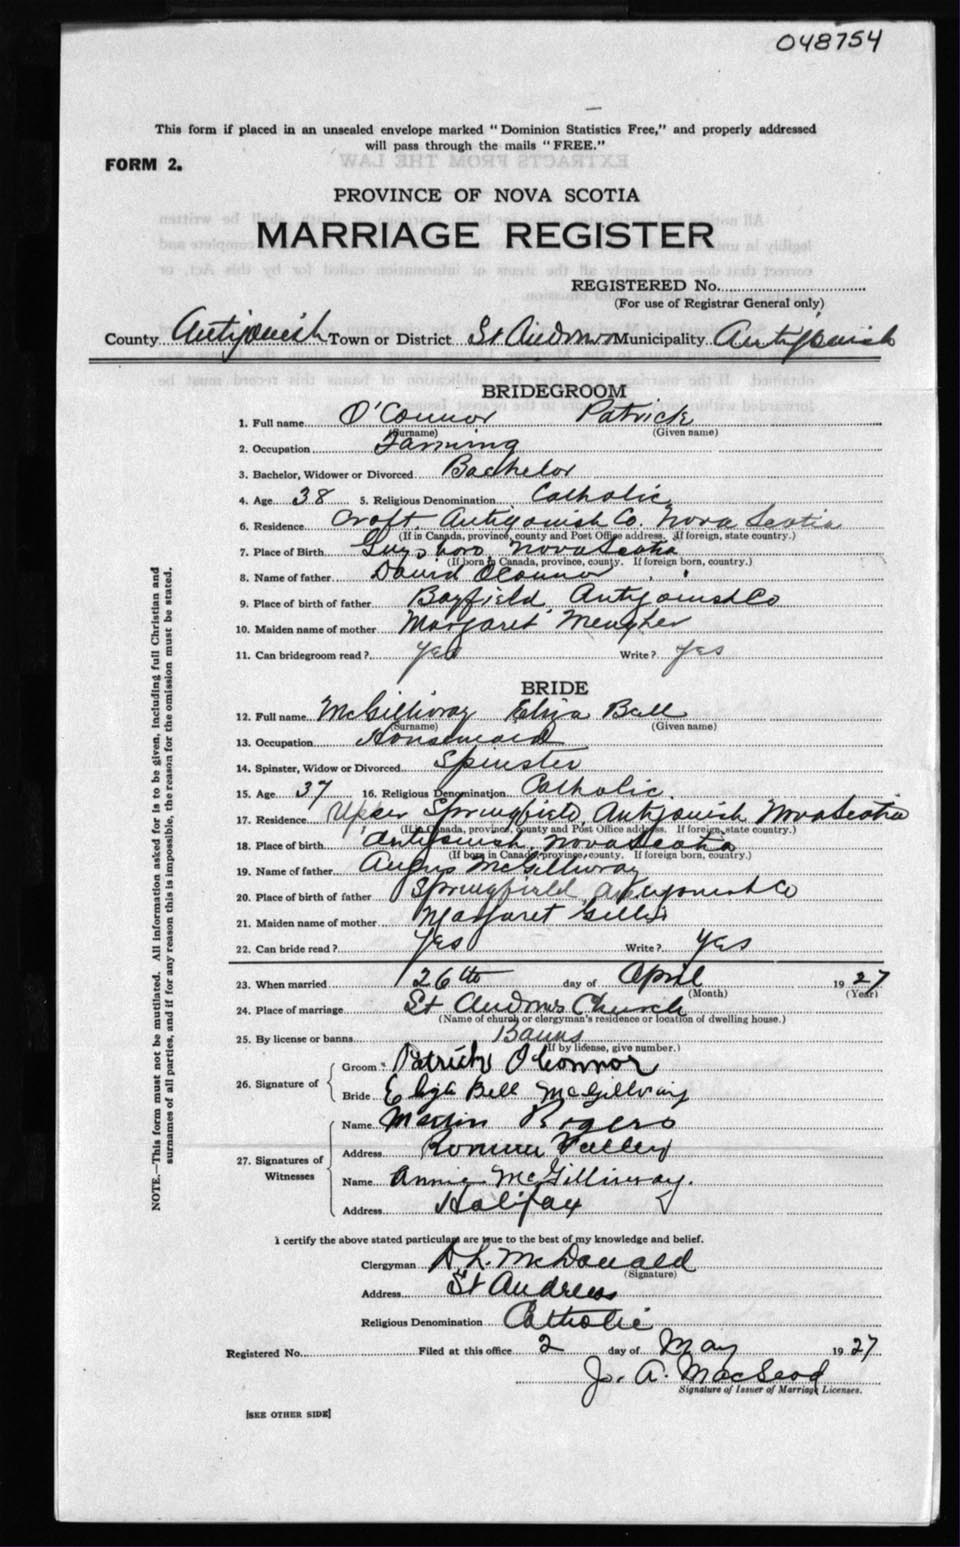 048754
This form if placed in an unsealed envelope marked "Dominion Statistics Free," and properly addressed
will pass through the mails "FREE."
FORM 2.
PROVINCE OF NOVA SCOTIA
MARRIAGE REGISTER
REGISTERED No.
(For use of Registrar General only)
County Antigonish Town or District St Andrews Municipality Antigonish
BRIDEGROOM
1. Full name O'Connor Patrick
(Surname) (Given name)
2. Occupation Farming
3. Bachelor, Widower or Divorced Bachelor
4. Age 38 5. Religious Denomination Catholic
6. Residence Croft, Antigonish Co. Nova Scotia
(If in Canada, province, county and Post Office address. If foreign, state country.)
7. Place of Birth Guysboro Nova Scotia
(If born in Canada, province, county. If foreign born, country.)
8. Name of father David O'Connor
9. Place of birth of father Bayfield, Antigonish Co
10. Maiden name of mother Margaret Meagher
11. Can bridegroom read? yes Write? yes
BRIDE
12. Full name McGillivray Eliza Bell
(Surname) (Given name)
13. Occupation Housemaid
14. Spinster, Widow or Divorced Spinster
15. Age 37 16. Religious Denomination Catholic
17. Residence Upper Springfield, Antigonish Nova Scotia
(If in Canada, province, county and Post Office address. If foreign, state country.)
18. Place of birth Antigonish, Nova Scotia
(If born in Canada, province, county. If foreign born, country.)
19. Name of father Angus McGillivray
20. Place of birth of father Springfield Antigonish Co
21. Maiden name of mother Margaret Gillis
22. Can bride read? Yes Write? Yes
23. When married 26th day of April 1927
(Month) (Year)
24. Place of marriage St Andrews Church
(Name of church or clergyman's residence or location of dwelling house.)
25. By license or banns Banns
(If by license, give number.)
26. Signature of
Groom Patrick O'Connor
Bride Eliza Bell McGillivray
27. Signatures of Witnesses
Name Martin Rogers
Address Roman Valley
Name Annie McGillivray.
Address Halifax
I certify the above stated particulars are true to the best of my knowledge and belief.
Clergyman D. L. McDonald
(Signature)
Address St Andrews
Religious Denomination Catholic
Registered No. Filed at this office 2 day of May 1927
Jo. A. MacLeod
Signature of Issuer of Marriage Licenses.
[SEE OTHER SIDE]
NOTE.—This form must not be mutilated. All information asked for is to be given, including full Christian and
surnames of all parties, and if for any reason this is impossible, the reason for the omission must be stated.